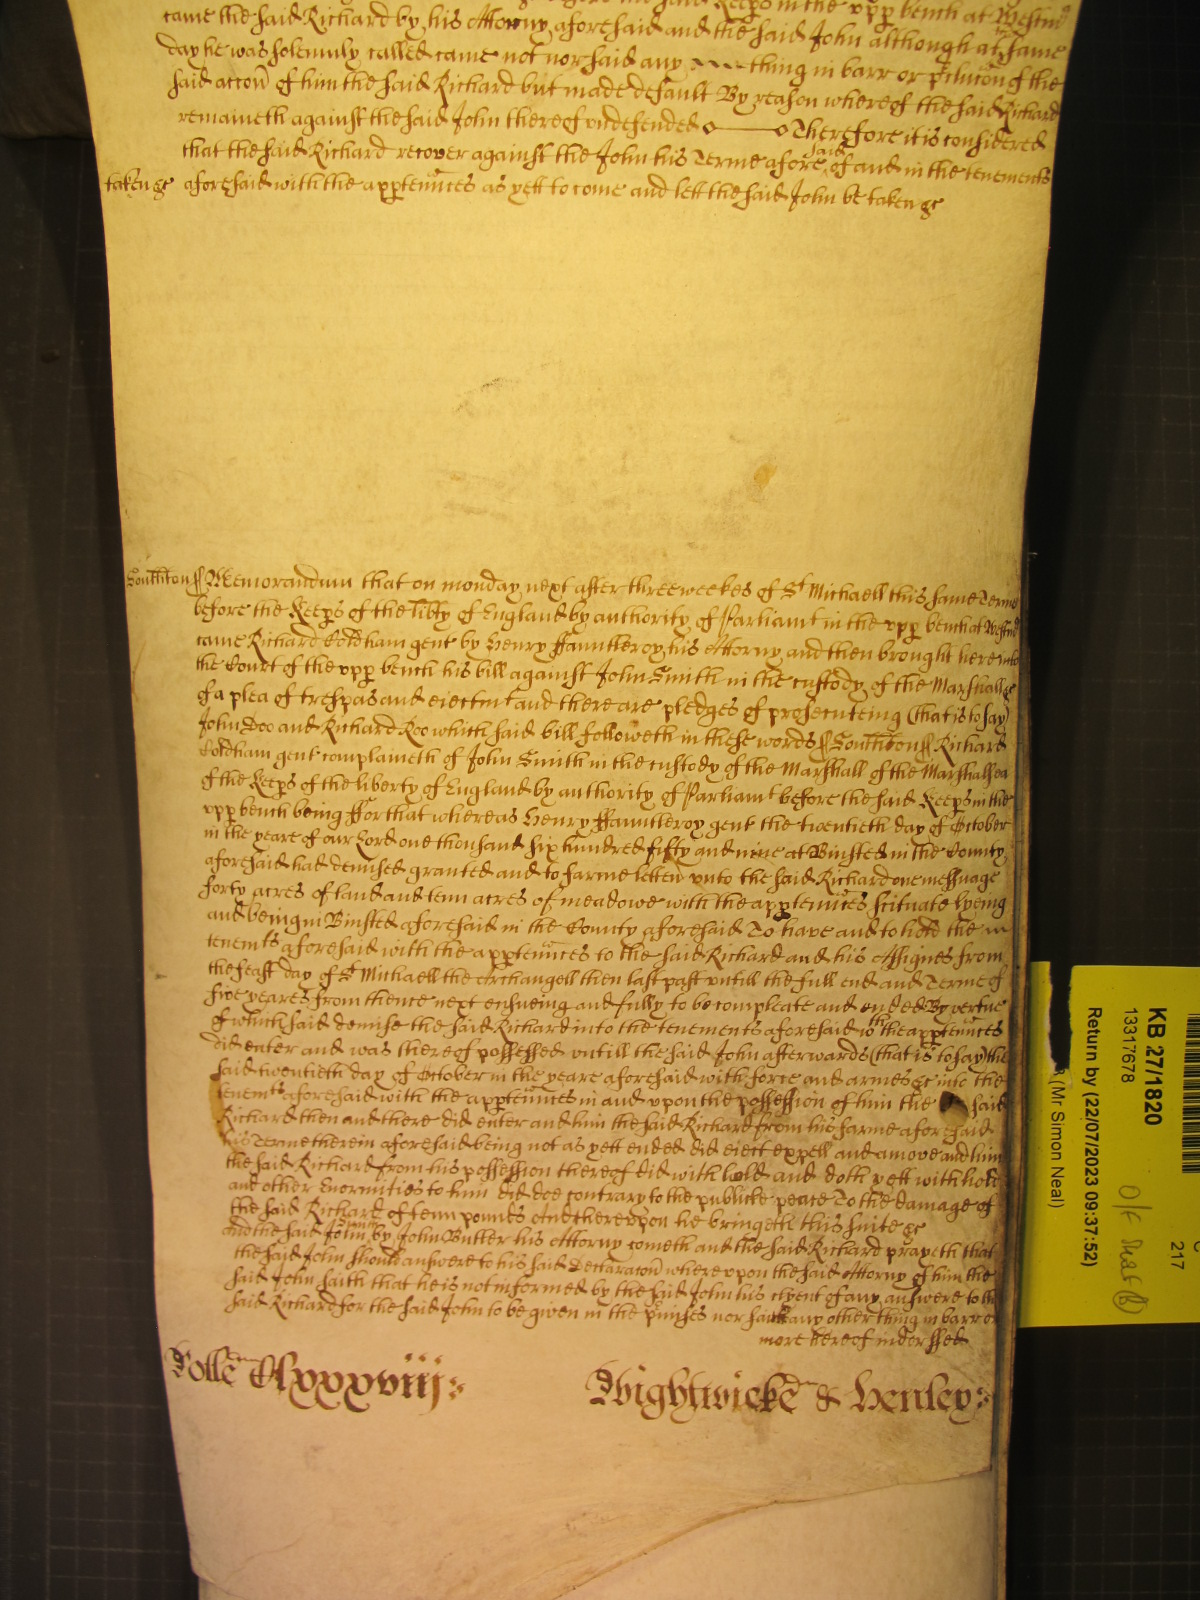 the said Keeps in the vpp bench at Westm
came the said Richard by his Attorny aforesaid and the said John although at same
day he was solemnly called came not nor said any thing in barr or pclucon of the
said accon of him the said Richard but made default By reason whereof the said Richard
remaineth against the said John thereof vndefended Therefore it is considered
that the said Richard recover against the John his Terme afore said of and in the tenements
taken &c aforesaid with the apptennces as yett to come and lett the said John be taken &c
Southton ss Memorandum that on monday next after three weekes of St Michaell this same Terme
before the Keeps of the libty of England by authority of Parliamt in the vpp bench at Westm
came Richard Coldham gent by Henry ffauntleroy his Attorny and then brought here into
the Court of the vpp bench his bill against John Smith in the custody of the Marshall &c
of a plea of trespas and eiectmt and there are pledges of prosecuteing (that is to say)
John Doo and Richard Roo which said bill followeth in these words ss Southton ss Richard
Coldham gent complaineth of John Smith in the custody of the Marshall of the Marshalsea
of the Keeps of the liberty of England by authority of Parliamt before the said Keeps in the
vpp bench being ffor that whereas Henry ffauntleroy gent the twentieth day of October
in the yeare of our Lord one thousand six hundred fifty and nine at Binsted in the County
aforesaid had demised granted and to farme letten vnto the said Richard one messuage
forty acres of land and tenn acres of meadowe with the apptennces scituate lyeing
and being in Binsted aforesaid in the County aforesaid To have and to hold the
tenemts aforesaid with the apptennces to the said Richard and his Assignes from
the feast day of St Michaell the Archangell then last past vntill the full end and Terme of
five yeares from thence next ensueing and fully to be compleate and ended By vertue
of which said demise the said Richard into the tenements aforesaid wth the apptennces
did enter and was thereof possessed vntill the said John afterwards (that is to say) the
said twentieth day of October in the yeare aforesaid with force and armes &c into the
tenemts aforesaid with the apptennces in and vpon the possession of him the said
Richard then and there did enter and him the said Richard from his farme aforesaid
his Terme therein aforesaid being not as yett ended did eiect expell and amove and him
the said Richard from his possession thereof did with hold and doth yett with hold
and other Enormities to him did doe contrary to the publicke peace To the damage of
the said Richard of tenn pounds And thereupon he bringeth this suite &c
And the said John Smith by John Butler his Attorny cometh and the said Richard prayeth that
the said John should answere to his said Declaracon whereupon the said Attorny of him the
said John saith that he is not informed by the said John his clyent of any answere to the
said Richard for the said John to be given in the pmisses nor saith any other thing in barr or
more hereof indorssed
Rolle Clxxxviij
Wightwicke & Henley
KB 27/1820
13317678
Return by (22/07/2023 09:37:52)
(Mr Simon Neal)
217